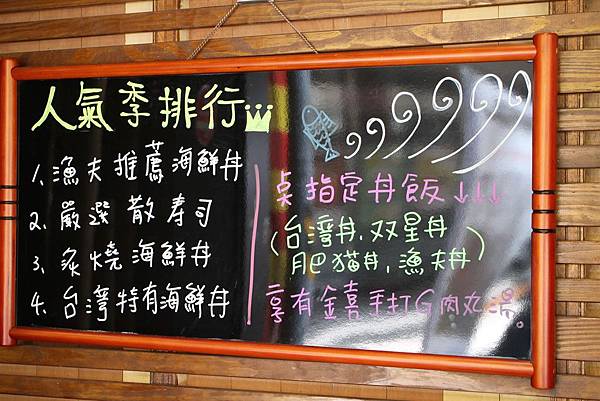 人氣季排行
1. 漁夫推薦海鮮丼
2. 嚴選散寿司
3. 炙燒海鮮丼
4. 台灣特有海鮮丼
桌指定丼飯↓↓↓
(台灣丼,双星丼
肥猫丼,漁夫丼)
享有金喜手打G肉丸湯。